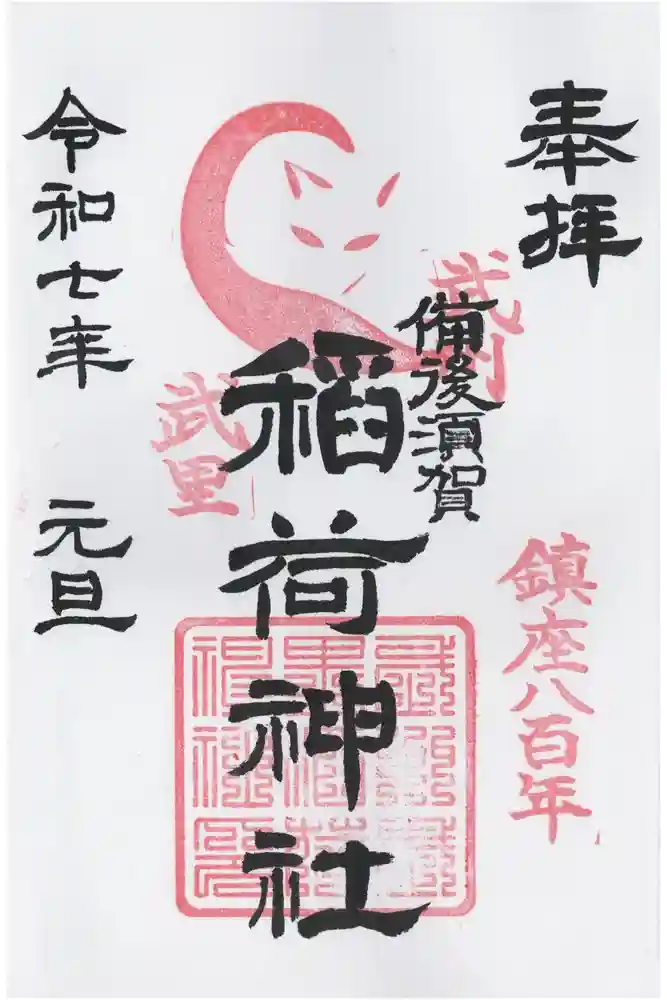 奉拝
武州
備後須賀
鎮座八百年
稲荷神社
武里
令和七年 元旦